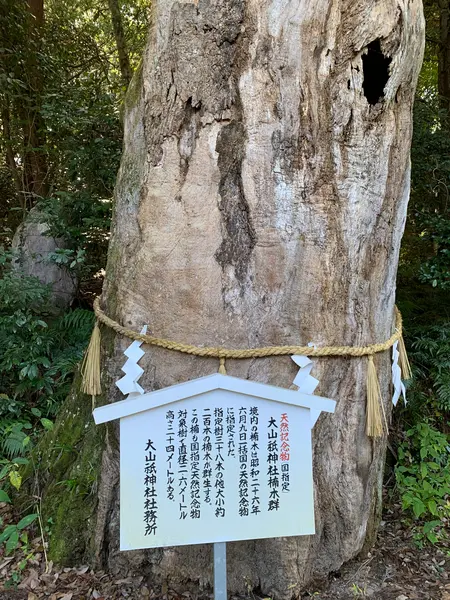 天然記念物 国指定
大山祇神社楠木群
境内の楠木は昭和二十六年
六月九日一括国の天然記念物
に指定された。
指定樹三十八本の他大小約
二百本の楠木が群生する。
この楠も国指定天然記念物
対象樹で直径二・六メートル
高さ二十四メートルある。
大山祇神社社務所